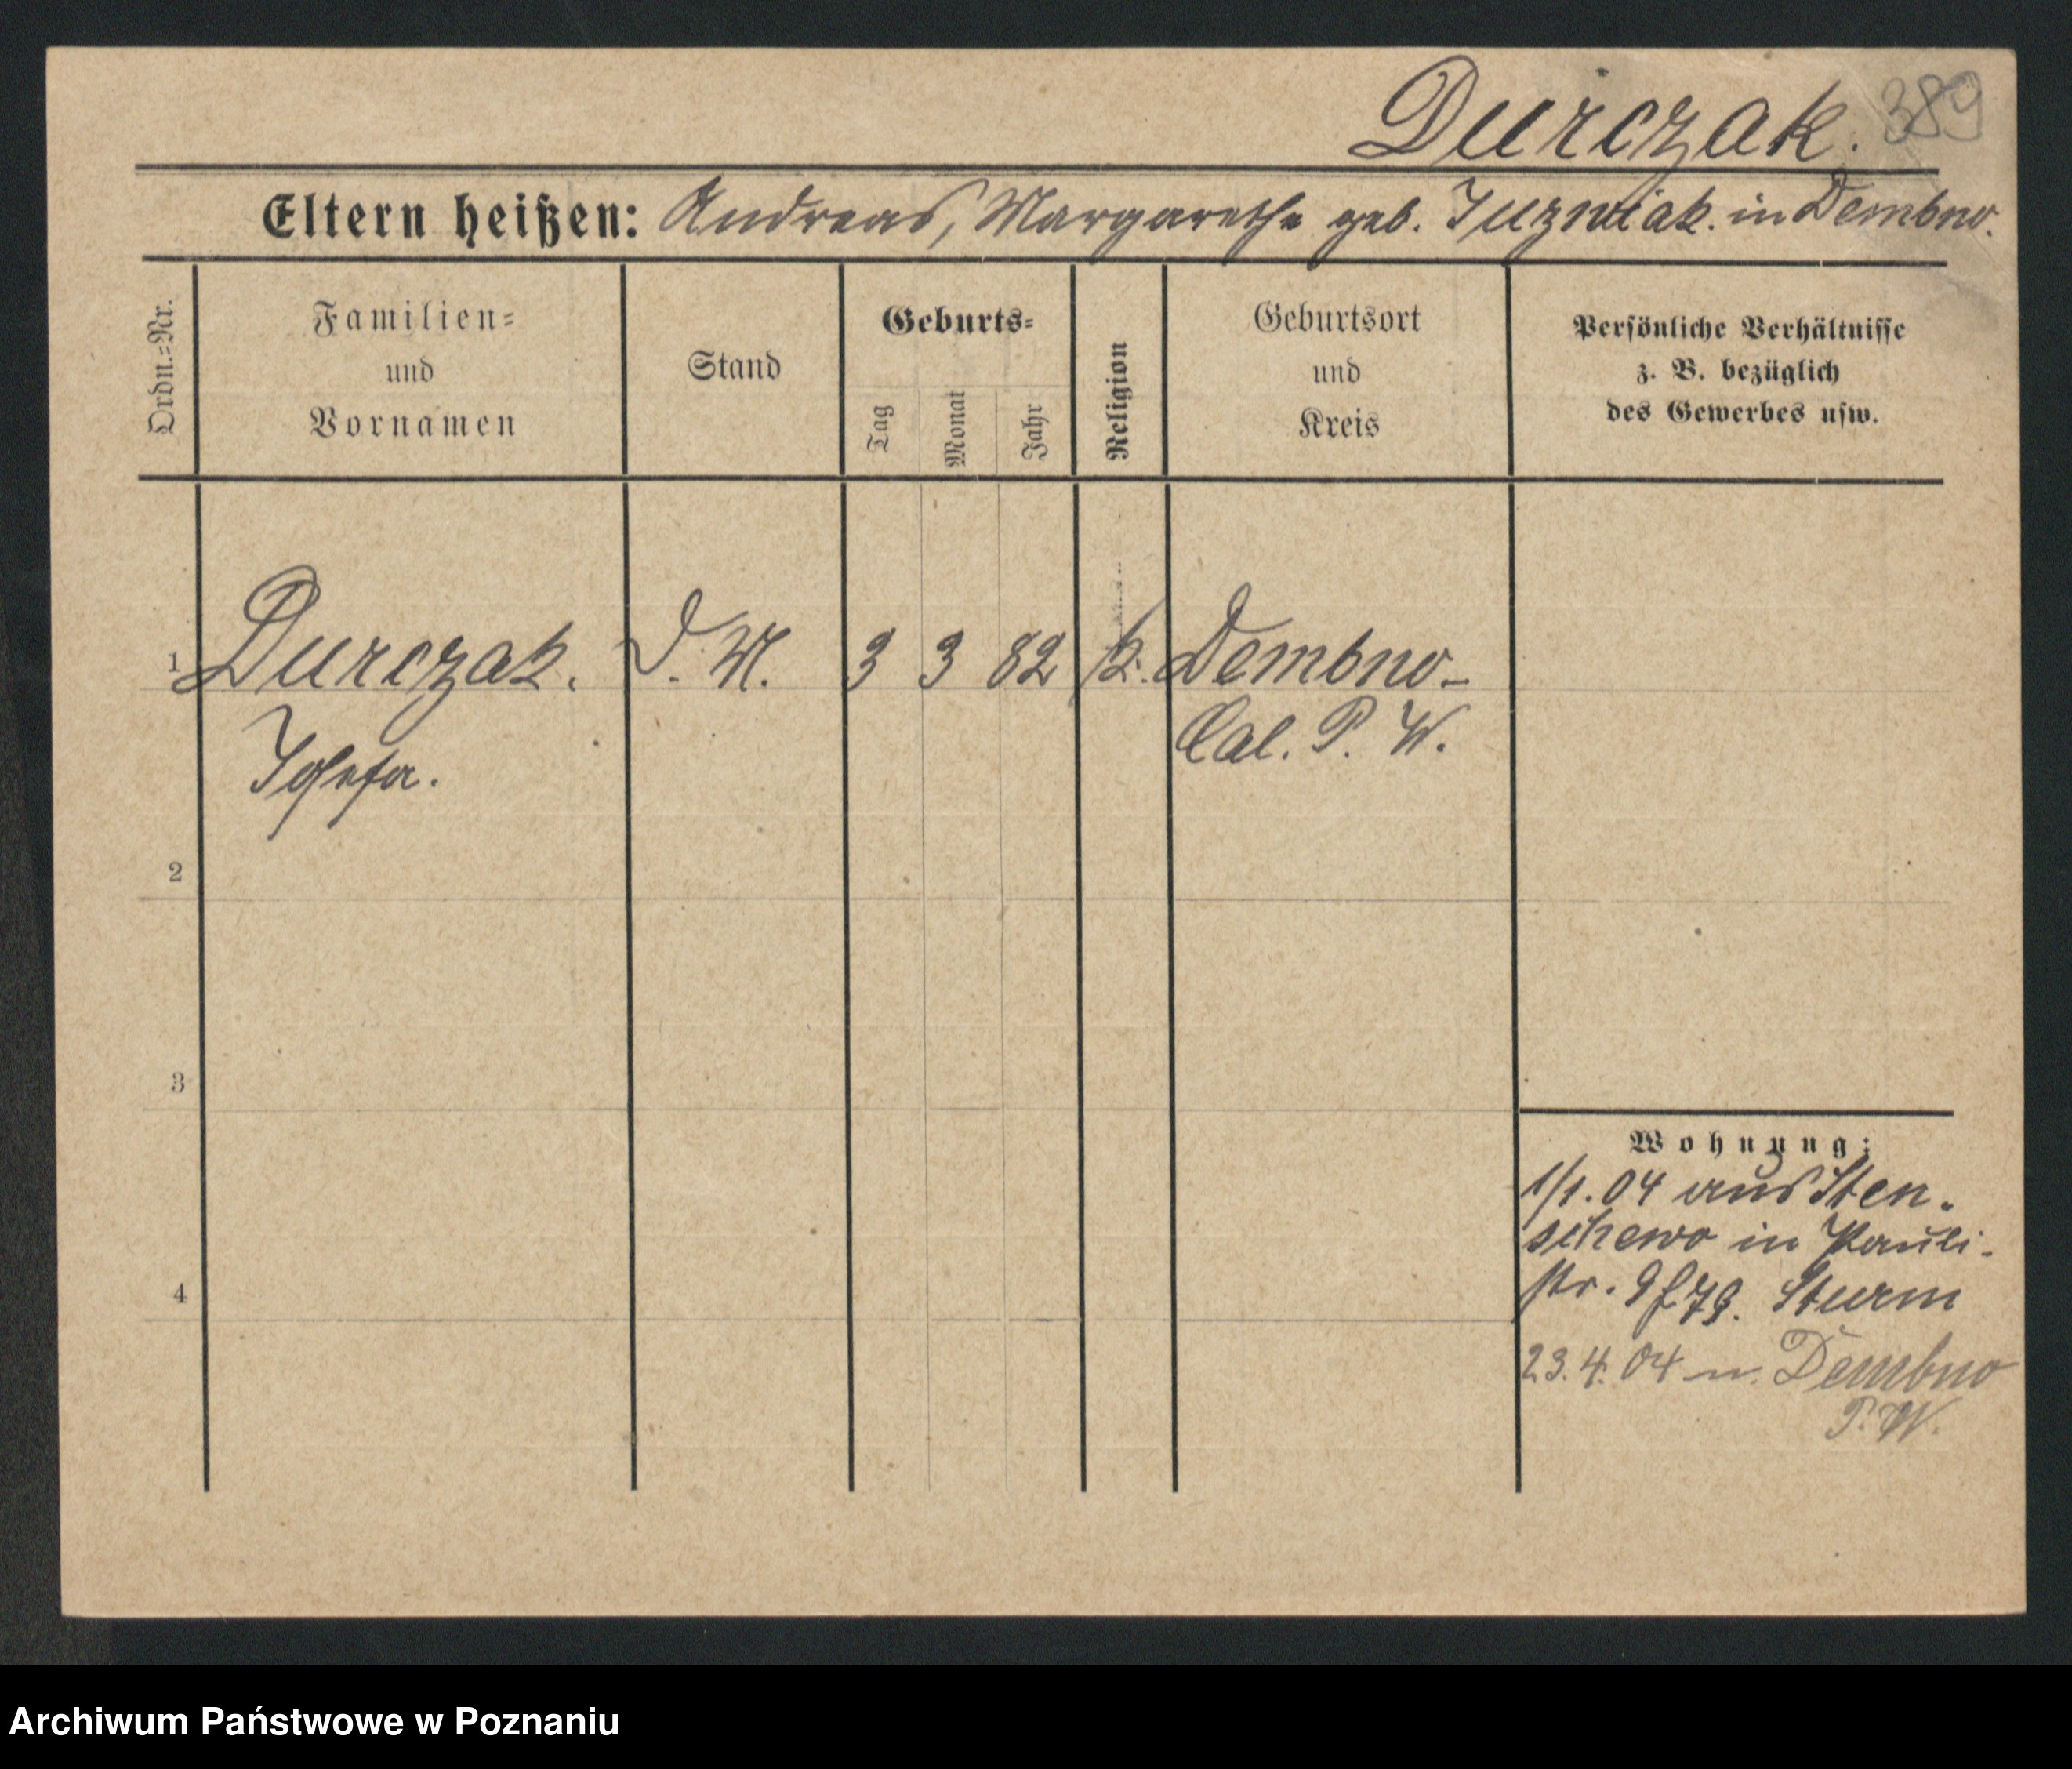 Durczak. 389
Eltern heißen: Andreas, Margarethe geb. Juzwiak. in Dembno.
Ordn.=Nr.
Familien=
und
Vornamen
Stand
Geburts=
Tag
Monat
Jahr
Religion
Geburtsort
und
Kreis
Persönliche Verhältnisse
z. B. bezüglich
des Gewerbes usw.
1 Durczak. D. M. 3 3 82 k. Dembno-
Josefa. Col. P. W.
2
3
4
Wohnung:
1/1. 04 aus Sten-
schewo in Pauli-
str. 9 Sturm
23. 4. 04 n. Dembno
P. W.
Archiwum Państwowe w Poznaniu